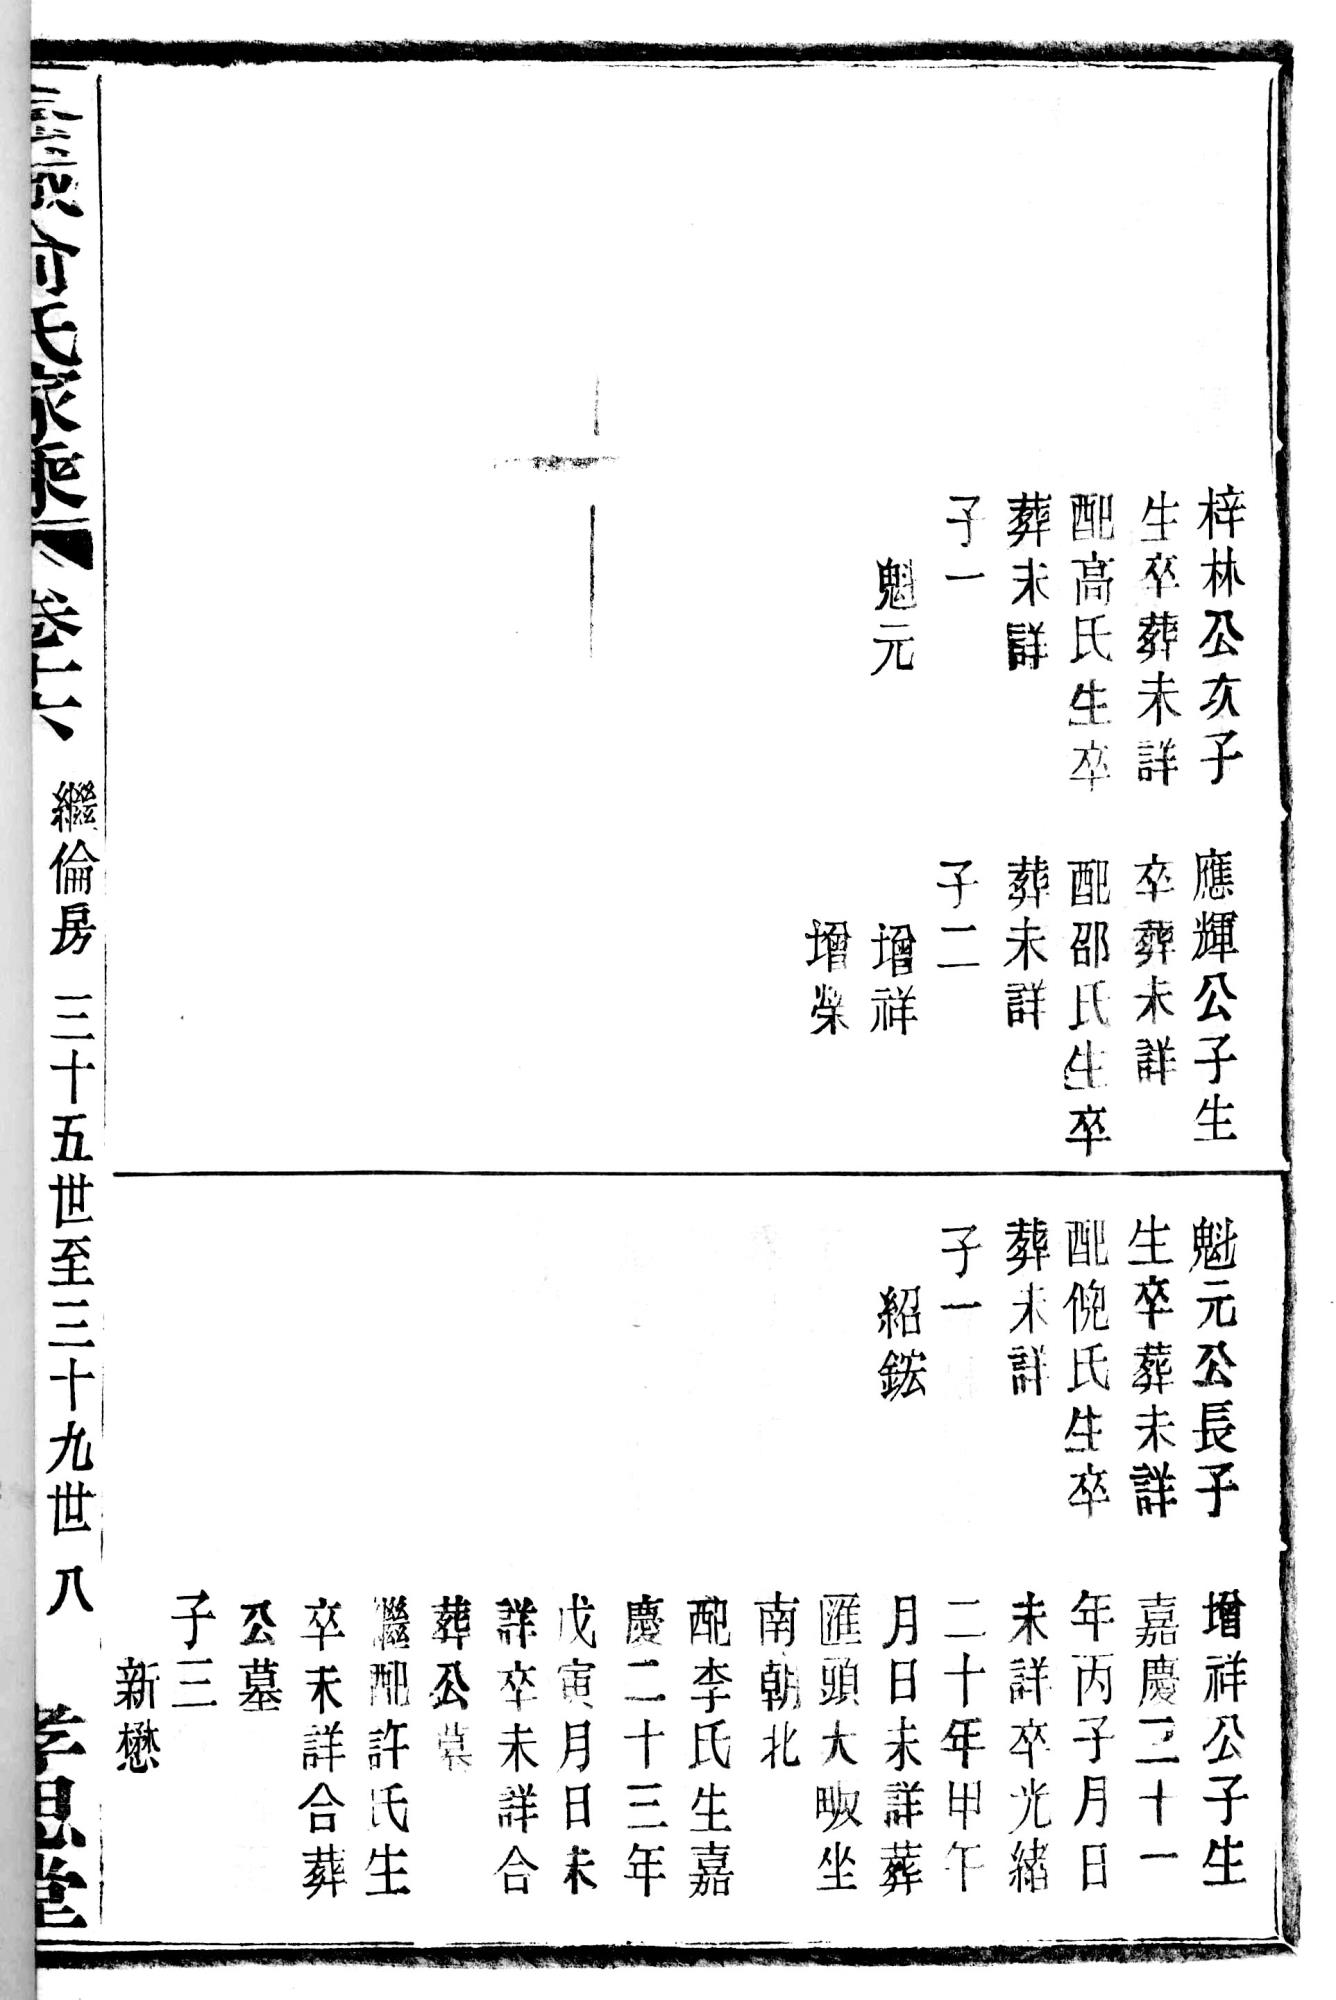 梓林公次子
生卒葬未詳
配高氏生卒
葬未詳
子一
魁元
應輝公子生
卒葬未詳
配邵氏生卒
葬未詳
子二
增祥
增榮
魁元公長子
生卒葬未詳
配倪氏生卒
葬未詳
子一
紹鋐
增祥公子生
嘉慶二十一
年丙子月日
未詳卒光緒
二十年甲午
月日未詳葬
匯頭大畈坐
南朝北
配李氏生嘉
慶二十三年
戊寅月日未
詳卒未詳合
葬公墓
繼配許氏生
卒未詳合葬
公墓
子三
新懋
俞氏家乘 卷十六 繼倫房 三十五世至三十九世 八 孝思堂